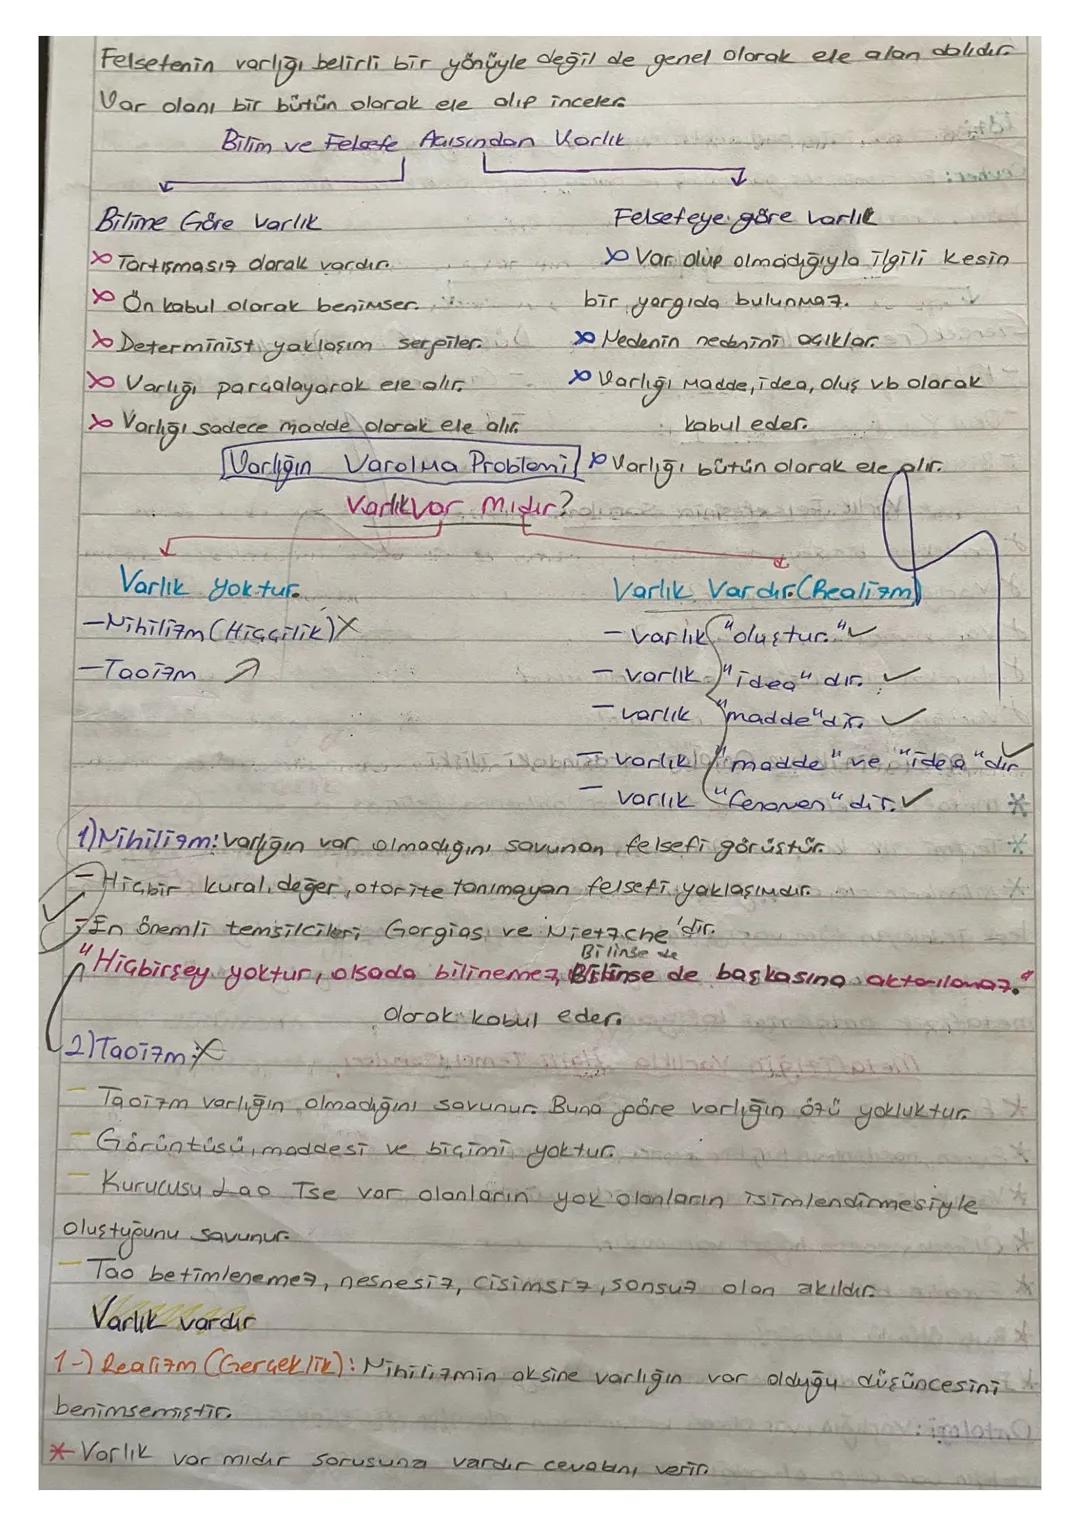 Felsefenin varlığı belirli bir yönüyle değil de genel olarak ele alan dalıdır.
Var olanı bir bütün olarak ele alıp inceler.
Bilim ve Felsefe Açısından Varlık
Bilime Göre Varlık
Tartışmasız olarak vardır.
Ön kabul olarak benimser.
Determinist yaklaşım sergiler.
Varlığı parçalayarak ele alır.
Varlığı sadece madde olarak ele alır.
Felsefeye göre Varlık
Var olup olmadığıyla ilgili kesin
bir yargıda bulunmaz.
Nedenin nedenini açıklar.
Varlığı Madde, idea, oluş vb olarak
kabul eder.
Varlığı bütün olarak ele alır.
Varlığın Varolma Problemi
Varlık var mıdır?
Varlık yoktur.
- Nihilizm (Hiççilik) X
- Taoizm
Varlık Vardır. (Realizm)
- varlık "oluştur." ✓
- varlık "idea" dır. ✓
- varlık "madde" dir. ✓
- varlık "madde" ve "idea" dır ✓
- varlık "fenomen" dir. ✓
1) Nihilizm: varlığın var olmadığını savunan felsefi görüştür.
- Hiçbir kural, değer, otorite tanımayan felsefi yaklaşımdır.
- En önemli temsilcileri Gorgias ve Nietzche'dir.
Bilinse de
"Hiçbirşey yoktur, olsada bilinemez, Bilinse de başkasına aktarılamaz."
olarak kabul eder.
2) Taoizm: X
- Taoizm varlığın olmadığını savunur. Buna göre varlığın özü yokluktur.
- Görüntüsü, maddesi ve biçimi yoktur.
- Kurucusu Lao Tse var olanların yok olanların isimlendirmesiyle
oluştuğunu savunur.
- Tao betimlenemez, nesnesiz, cisimsiz, sonsuz olan akıldır.
Varlık vardır
1-) Realizm (Gerçeklik): Nihilizmin aksine varlığın var olduğu düşüncesini
benimsemiştir.
* Varlık var mıdır sorusuna vardır cevabını verir.